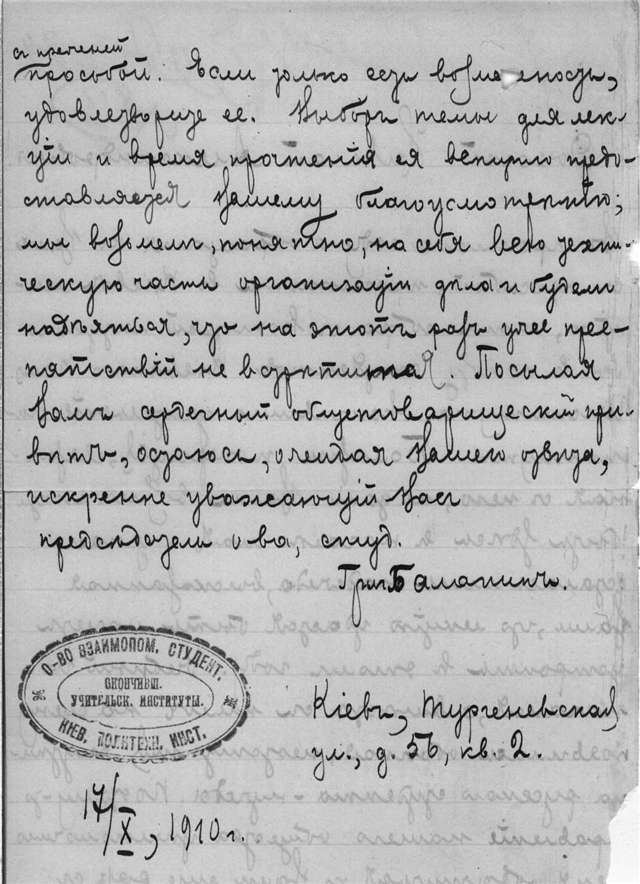 съ прежней
просьбой. Если только есть возможность,
удовлетворите ее. Выборъ темы для лек-
ціи и время прочтенія ея вполнѣ предо-
ставляется Вашему благоусмотрѣнію;
мы возьмемъ, понятно, на себя всю техни-
ческую часть организаціи дѣла и будемъ
надѣяться, что на этотъ разъ уже преп-
пятствій не встрѣтится. Посылая
Вамъ сердечный общетоварищескій при-
вѣтъ, остаюсь, ожидая Вашего отвѣта,
искренне уважающій Васъ
предсѣдатель о-ва, студ.
Григ. Балапинъ.
О-ВО ВЗАИМОПОМ. СТУДЕНТ.
ОКОНЧИВШ.
УЧИТЕЛЬСК. ИНСТИТУТЫ.
КІЕВ. ПОЛИТЕХН. ИНСТ.
Кіевъ, Тургеневская
ул., д. 56, кв. 2.
17/X, 1910 г.